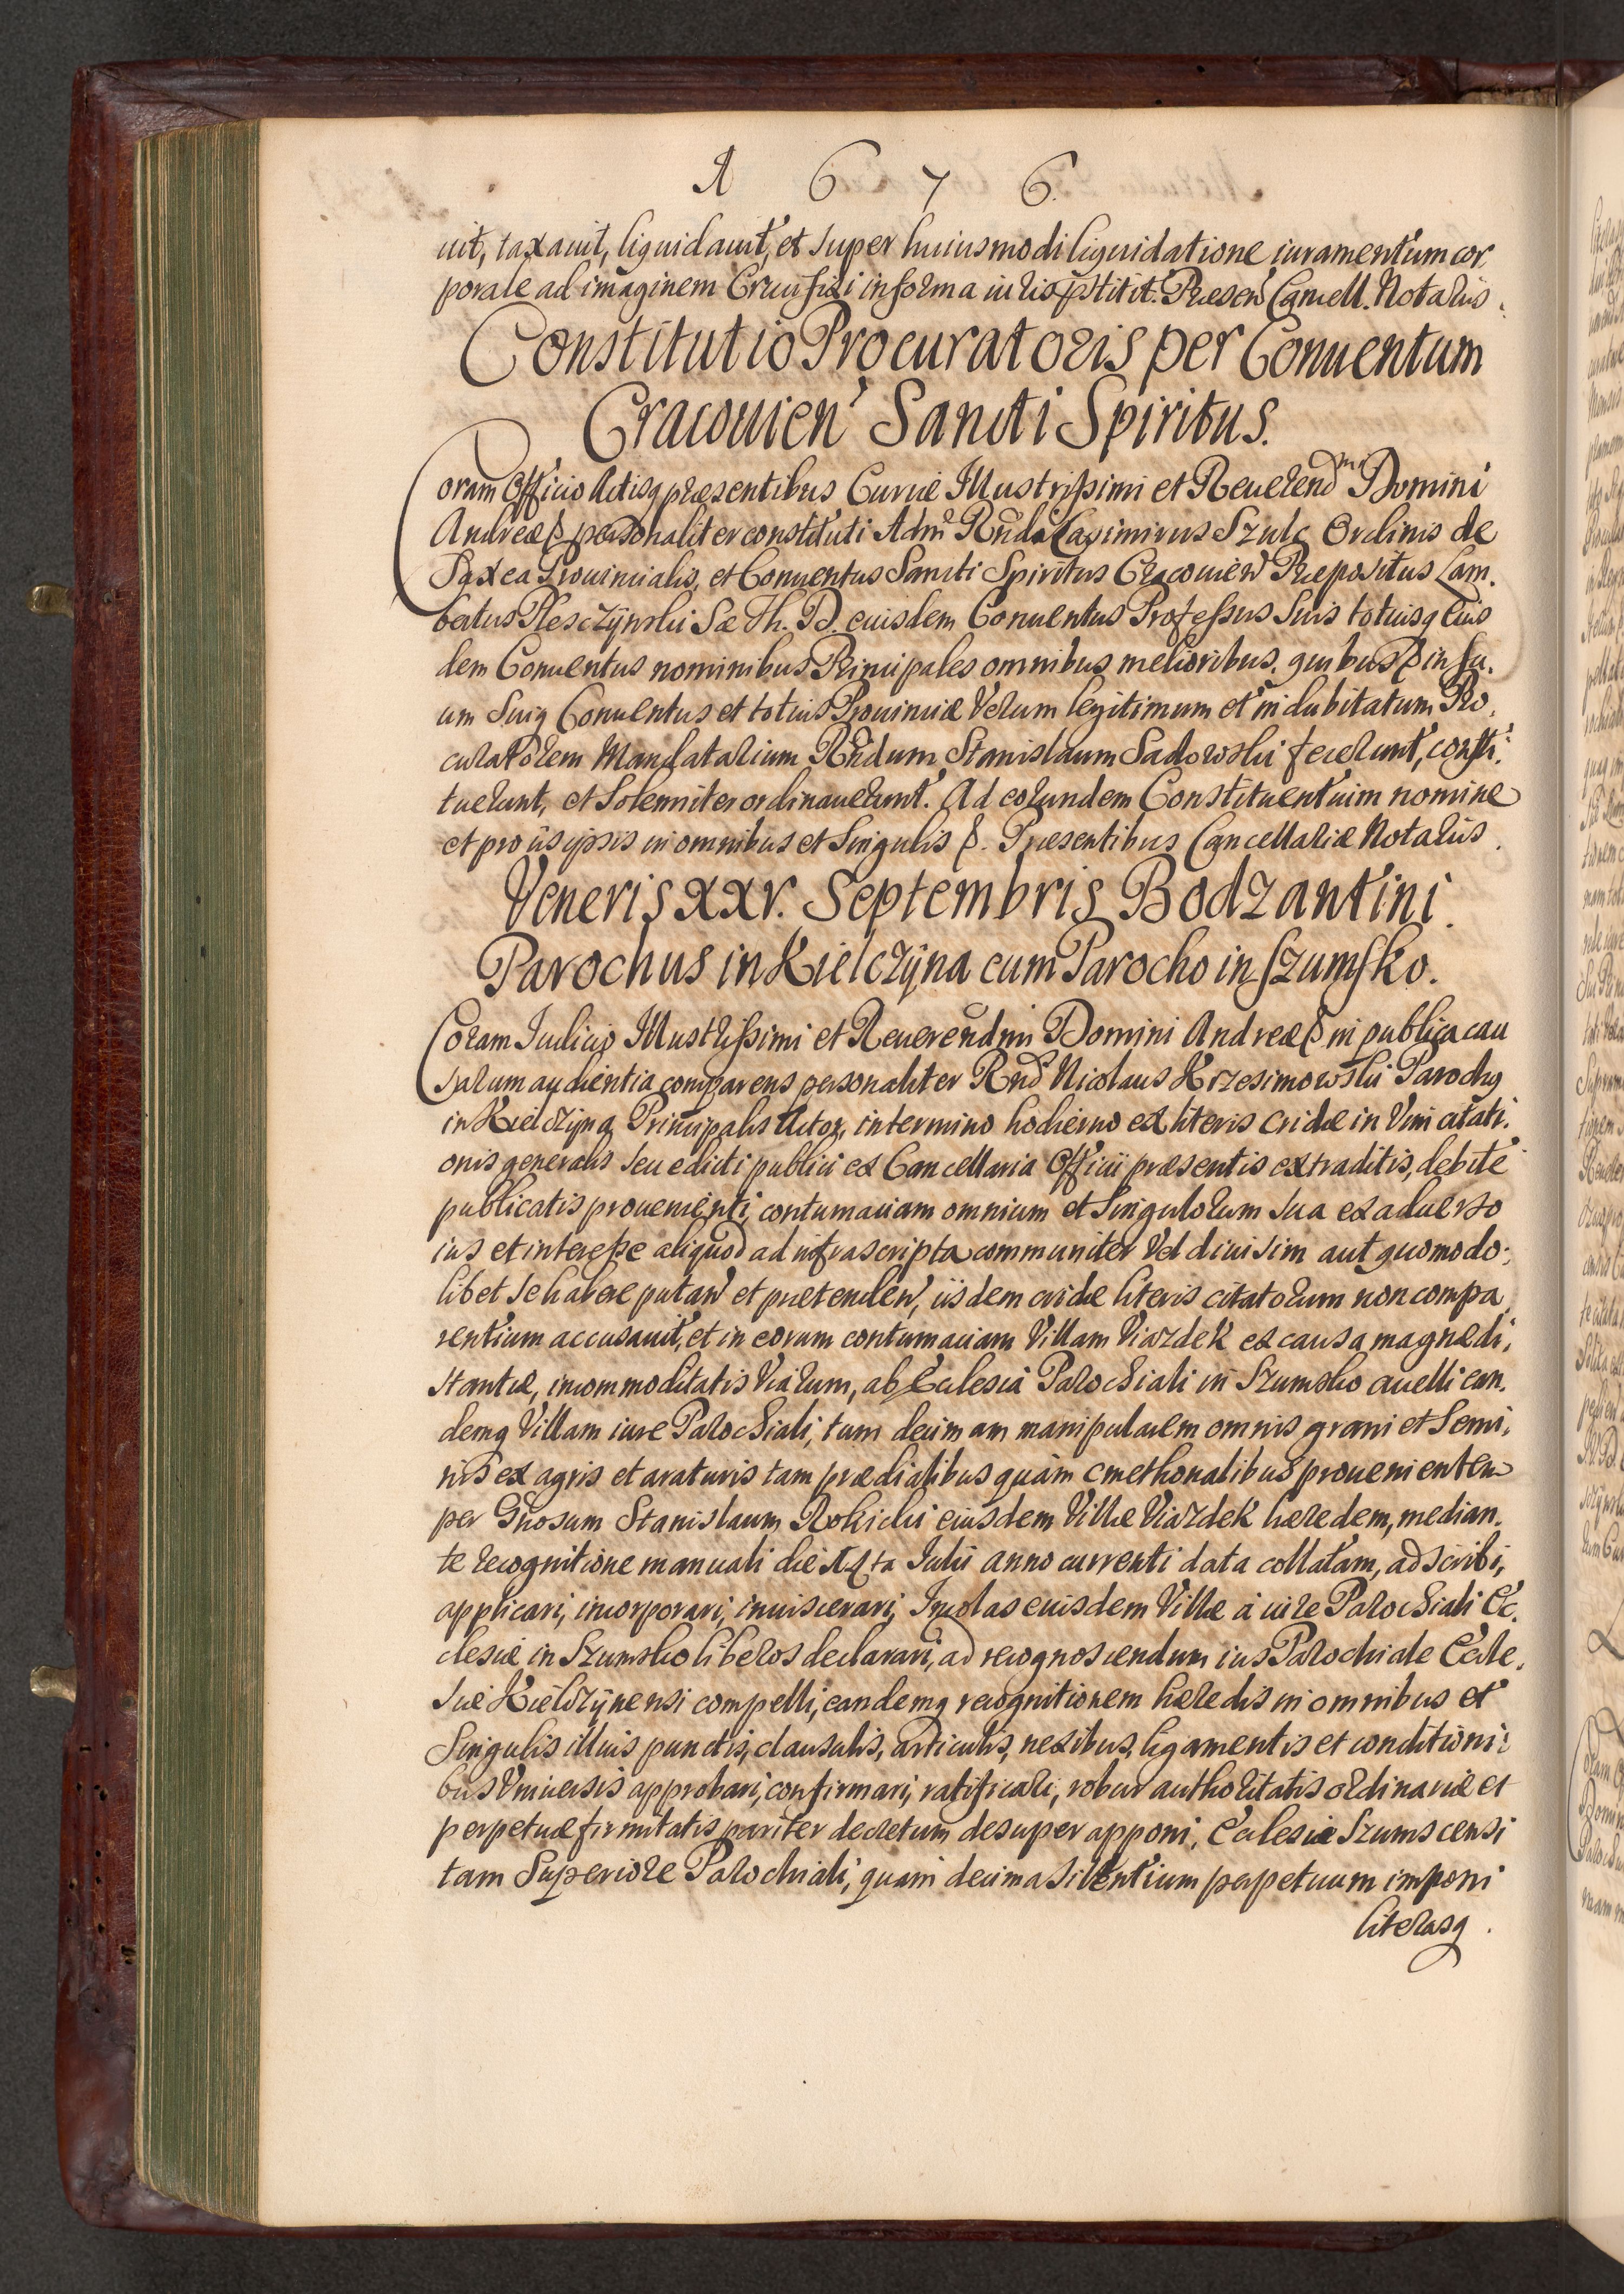 1 6 7 6.
uit, taxauit, liquidauit, et super huiusmodi liquidatione iuramentum cor,
porale ad imaginem Crucifixi in forma iuris pstitit. Præsen Cancell. Notarius.
Constitutio Procuratoris per Conuentum
Cracouien Sancti Spiritus.
Coram Officio Actisq præsentibus Curiæ Illustrissimi et Reuerendmi Domini
Andreæ & personaliter constituti Admo Rndi Casimirus Szulc Ordinis de
Saxea Prouincialis, et Conuentus Sancti Spiritus Cracouien Præpositus Lam,
bertus Plesczÿnski Sæ Th. D. euisdem Conuentus Professus suis totiusq eius
dem Conuentus nominibus Principales omnibus melioribus. quibus & in su,
um suiq Conuentus et totius Prouinciæ Verum legitimum et indubitatum Pro,
curatorem Mandatarium Rndum Stanislaum Sadowski fecerunt, consti,
tuerunt, et Solenniter ordinauerunt. Ad eorundem Constituentium nomine
et pro iis ipsis in omnibus et Singulis &. Præsentibus Cancellariæ Notarius.
Veneris XXV. Septembris Bodzantini.
Parochus in Kielczÿna cum Parocho in Szumsko.
Coram Iudicio Illustrissimi et Reuerendmi Domini Andreæ & in publica cau
sarum audientia comparens personaliter Rnd Nicolaus Krzesimowski Parochq
in Kielczÿna Principalis Actor, in termino hodierno ex literis cridæ in Vim citati,
onis generalis seu edicti publici ex Cancellaria Officii præsentis extraditis, debite
publicatis prouenienti, contumaciam omnium et Singulorum sua ex aduerso
ius et interesse aliquod ad infrascripta communiter Vel diuisim aut quomodo,
libet se habere putan et prætenden, iisdem cridæ literis citatorum non compa
rentium accusauit, et in eorum contumaciam Villam Viazdek ex causa magnæ di,
stantiæ, incommoditatis Viarum, ab Ecclesia Parochiali in Szumsko auelli ean,
demq Villam iure Parochiali, tum decimam manipularem omnis grani et semi,
nis ex agris et araturis tam prædialibus quàm cmethonalibus prouenienten
per Gnosum Stanislaum Rokicki eiusdem Villæ Viazdek hæredem, median,
te recognitione manuali die 14ta Iulii anno currenti data collatam, adscribi,
applicari, incorporari, inuiscerari, Incolas euisdem Villæ à iure Parochiali Ec,
clesiæ in Szumsko liberos declarari, ad recognoscendum ius Parochiale Eccle,
siæ Kielczÿnensi compelli, eandemq recognitionem hæredis in omnibus et
Singulis illius punctis, clausulis, articulis, nexibus, ligamentis et conditioni,
bus Vniuersis approbari, confirmari, ratificari, robur authoritatis ordinariæ et
perpetuæ firmitatis pariter decretum desuper apponi, Ecclesiæ Szumscensi
tam Superiore Parochiali, quam decima silentium perpetuum imponi
literasq.